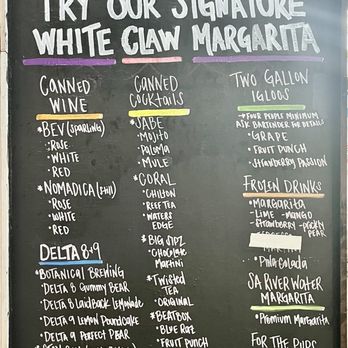 TRY OUR SIGNATURE
WHITE CLAW MARGARITA
CANNED
WINE
*BEV (SPARKLING)
: ROSE
- WHITE
- RED
*NOMADICA (STILL)
- ROSE
- WHITE
- RED
DELTA 8+9
*BOTANICAL BREWING
*DELTA 8 GUMMY BEAR
*DELTA 8 LAIDBACK LEMONADE
*DELTA 9 LEMON POUNDCAKE
*DELTA 9 PERFECT PBAR
CANNED
COCKTAILS
*JABE
- MOJITO
- PALOMA
- MULE
*CORAL
- CHILTON
- REEF TEA
- WATERS
EDGE
*BIG SIPZ
- CHOCOLATE
MARTINI
*TWISTED
TEA
- ORIGINAL
*BEATBOX
- BLUE RAZZ
- FRUIT PUNCH
TWO GALLON
IGLOOS
→ FOUR PEOPLE MINIMUM
ASK BARTENDER FOR DETAILS
- GRAPE
- FRUIT PUNCH
- STRAWBERRY PASSION
FROZEN DRINKS
- MARGARITA
- LIME - MANGO
- STRAWBERRY - PRICKLY
PEAR
- PINA COLADA
SA RIVER WATER
MARGARITA
* PREMIUM MARGARITA
FOR THE PUPS